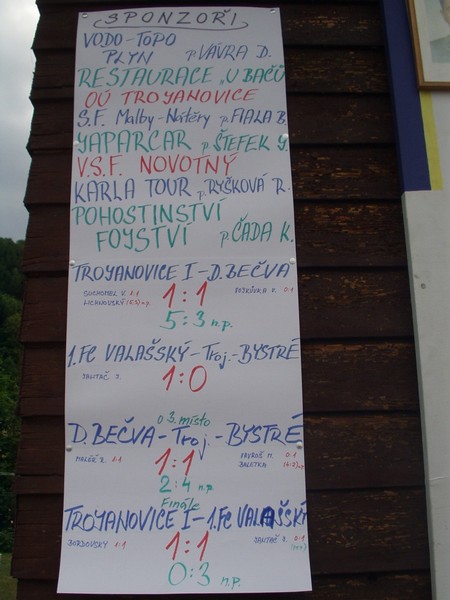 SPONZOŘI
VODO-TOPO
PLYN p. VÁVRA D.
RESTAURACE „U BAČŮ
OÚ TROJANOVICE
S.F. Malby-Nátěry p. FIALA B.
YAPARCAR p. ŠTEFEK Y.
V.S.F. NOVOTNÝ
KARLA TOUR p. RYŠKOVÁ R.
POHOSTINSTVÍ
FOJSTVÍ p. ČADA K.
TROJANOVICE I - D. BEČVA
SUCHOMEL V. 1:1
1:1
0:1
5:3 n.p.
1. FC VALAŠSKÝ - Troj. - BYSTRÉ
1:0
o 3. místo
D. BEČVA - Troj. - BYSTRÉ
1:1
1:1
0:1
2:4 n.p.
Finále
TROJANOVICE I - 1. FC VALAŠSKÝ
BORDOVSKÝ 1:1
1:1
0:1
0:3 n.p.